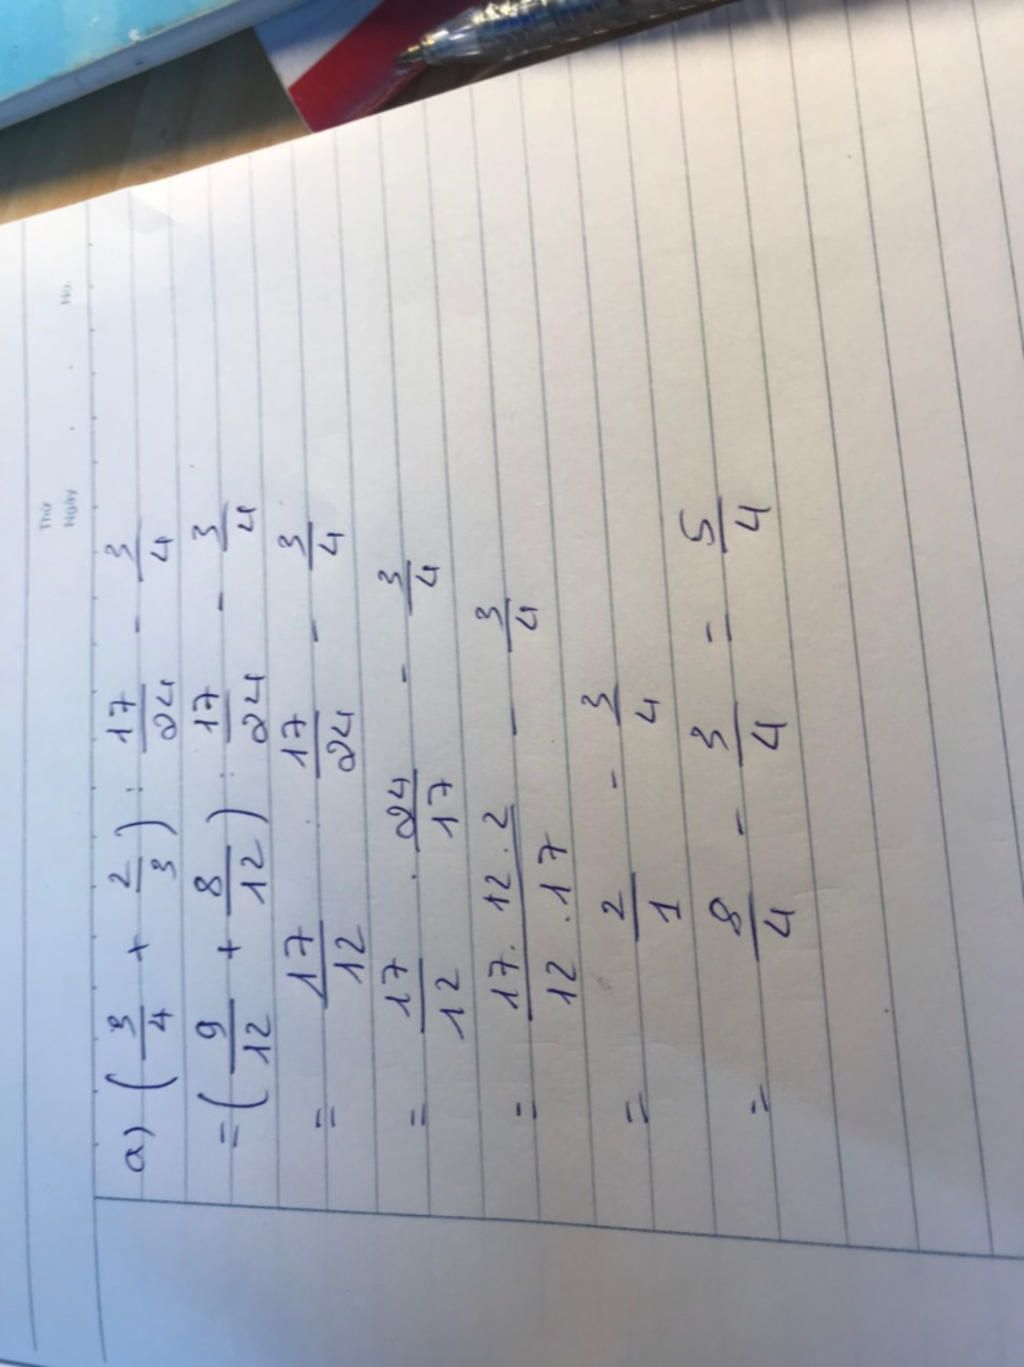 Thứ
Ngày . . No.
a) (3/4 + 2/3) : 17/24 - 3/4
= (9/12 + 8/12) : 17/24 - 3/4
= 17/12 : 17/24 - 3/4
= 17/12 . 24/17 - 3/4
= 17.12.2/12.17 - 3/4
= 2/1 - 3/4
= 8/4 - 3/4 = 5/4